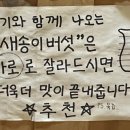 기와 함께 나오는
새송이버섯”은
로 잘라드시면
더욱더 맛이 끝내줍니다
☆추천☆